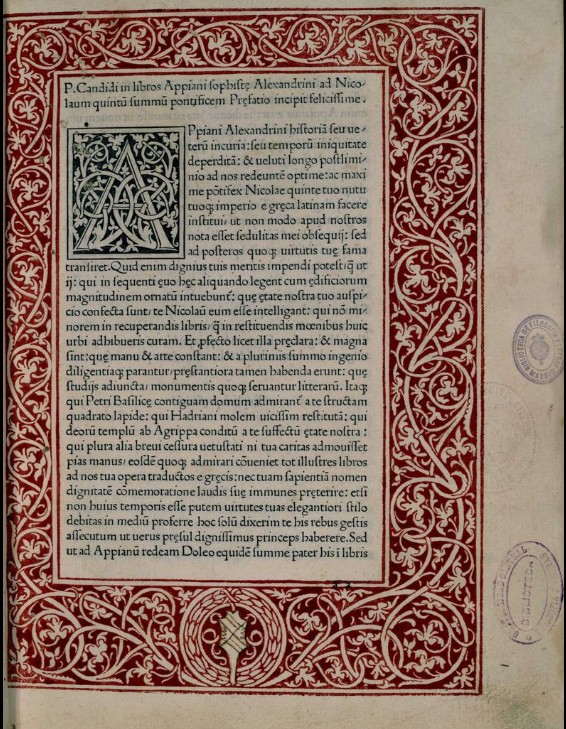 P. Candidi in libros Appiani sophistę Alexandrini ad Nico⸗
laum quintū summū pontificem Pręfatio incipit felicissime.
APpiani Alexandrini historiā seu ue⸗
terū incuria: seu temporū iniquitate
deperditā: & ueluti longo postlimi⸗
nio ad nos redeuntē optime: ac maxi
me pōtifex Nicolae quinte tuo nutu
tuoq; imperio e gręca latinam facere
institui/ ut non modo apud nostros
nota esset sedulitas mei obsequij: sed
ad posteros quoq; uirtutis tuę fama
transiret. Quid enim dignius tuis meritis impendi potest/ q̄ ut
ij: qui in sequenti ęuo hęc aliquando legent cum ędificiorum
magnitudinem ornatū intuebunt̄: quę ętate nostra tuo auspi⸗
cio confecta sunt/ te Nicolaū eum esse intelligant: qui nō mi⸗
norem in recuperandis libris/ q̄ in restituendis mœnibus huic
urbi adhibueris curam. Et ꝓfecto licet illa pręclara: & magna
sint: quę manu & arte constant: & a plurimis summo ingenio
diligentiaq; parantur/ pręstantiora tamen habenda erunt: quę
studijs adiuncta/ monumentis quoq; seruantur litterarū. Itaq;
qui Petri Basilicę contiguam domum admirant̄ a te structam
quadrato lapide: qui Hadriani molem uicissim restitutā: qui
deorū templū ab Agrippa conditū a te suffectū ętate nostra:
qui plura alia breui cessura uetustati ni tua caritas admouisset
pias manus/ eosdē quoq; admirari cōueniet tot illustres libros
ad nos tua opera traductos e gręcis: nec tuam sapientiā nomen
dignitatē cōmemoratione laudis suę immunes pręterire: etsi
non huius temporis esse putem uirtutes tuas elegantiori stilo
debitas in mediū proferre hoc solū dixerim te his rebus gestis
assecutum ut uerus pręsul dignissimus princeps haberere. Sed
ut ad Appianū redeam Doleo equidē summe pater his i libris
BIBLIOTECA DE FILOSOFIA
BIBLIOTECA